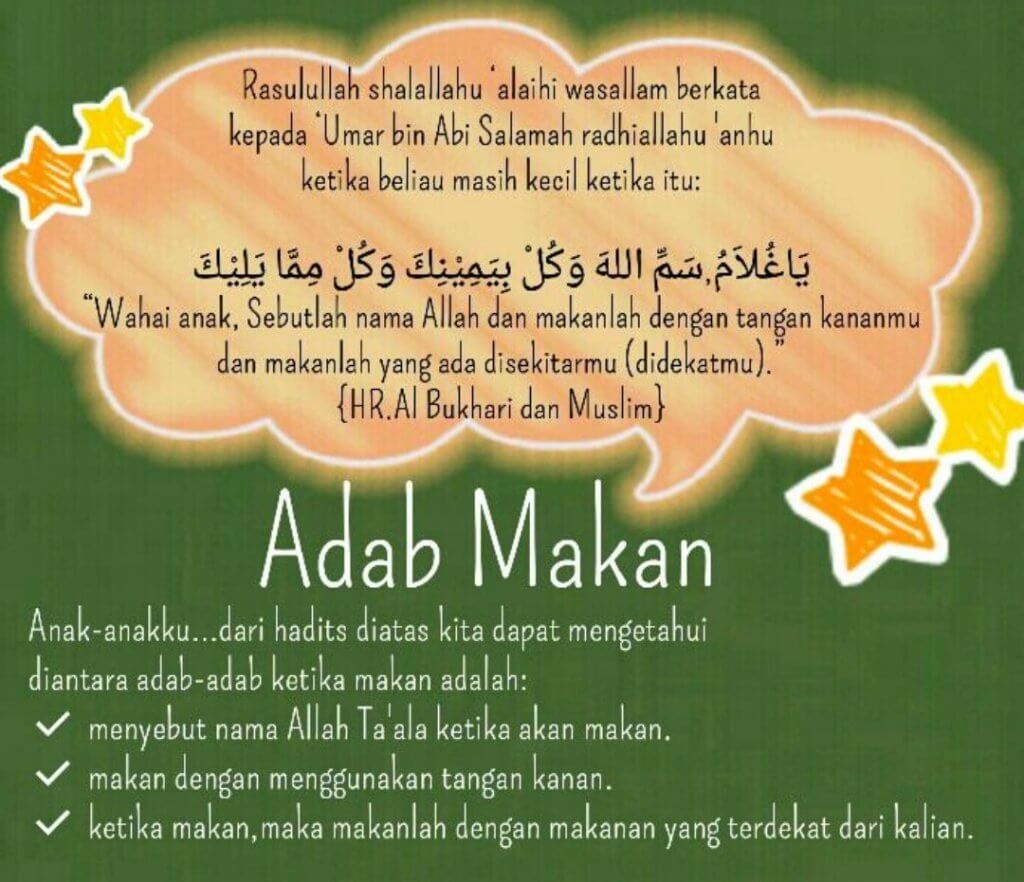 Rasulullah shalallahu 'alaihi wasallam berkata
kepada 'Umar bin Abi Salamah radhiallahu 'anhu
ketika beliau masih kecil ketika itu:
يَاغُلَامُ,سَمِّ اللهَ وَكُلْ بِيَمِيْنِكَ وَكُلْ مِمَّا يَلِيْكَ
"Wahai anak, Sebutlah nama Allah dan makanlah dengan tangan kananmu
dan makanlah yang ada disekitarmu (didekatmu)."
{HR.Al Bukhari dan Muslim}
Adab Makan
Anak-anakku...dari hadits diatas kita dapat mengetahui
diantara adab-adab ketika makan adalah:
✓ menyebut nama Allah Ta'ala ketika akan makan.
✓ makan dengan menggunakan tangan kanan.
✓ ketika makan,maka makanlah dengan makanan yang terdekat dari kalian.